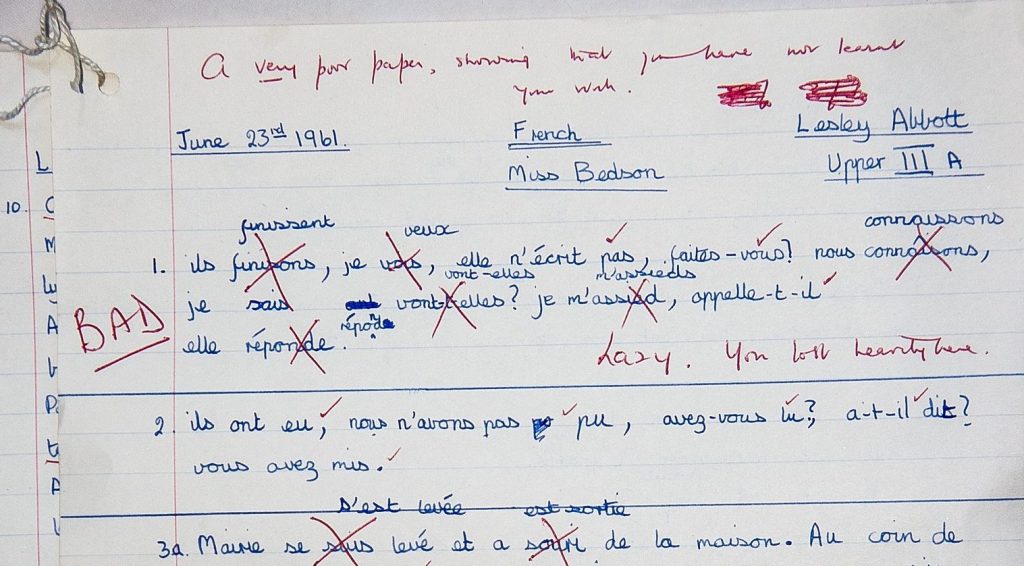 A very poor paper, showing that you have not learnt
your work.
June 23rd 1961.
French
Lesley Abbott
Miss Bedson
Upper III A
finissent veux connaissons
1. ils finisons, je vois, elle n'écrit pas, faites-vous? nous connaisons,
vont-elles m'assieds
je sais vont-elles? je m'assied, appelle-t-il
BAD
répond
elle réponde.
Lazy. You lost heavily here.
2. ils ont eu, nous n'avons pas pu, avez-vous lu? a-t-il dit?
vous avez mis.
s'est levée est sortie
3a. Marie se suis levé et a sorti de la maison. Au coin de
L
10. C
M
A